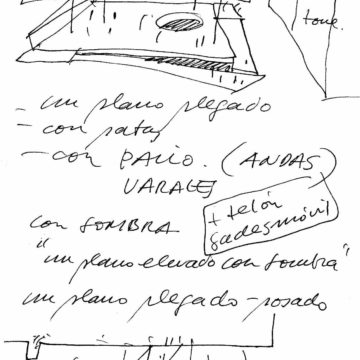 toue.
— un plano plegado
— con patas
— con PALIO. (ANDAS)
VARALES
+ telón
con SOMBRA
"un plano elevado con sombra"
un plano plegado - posado